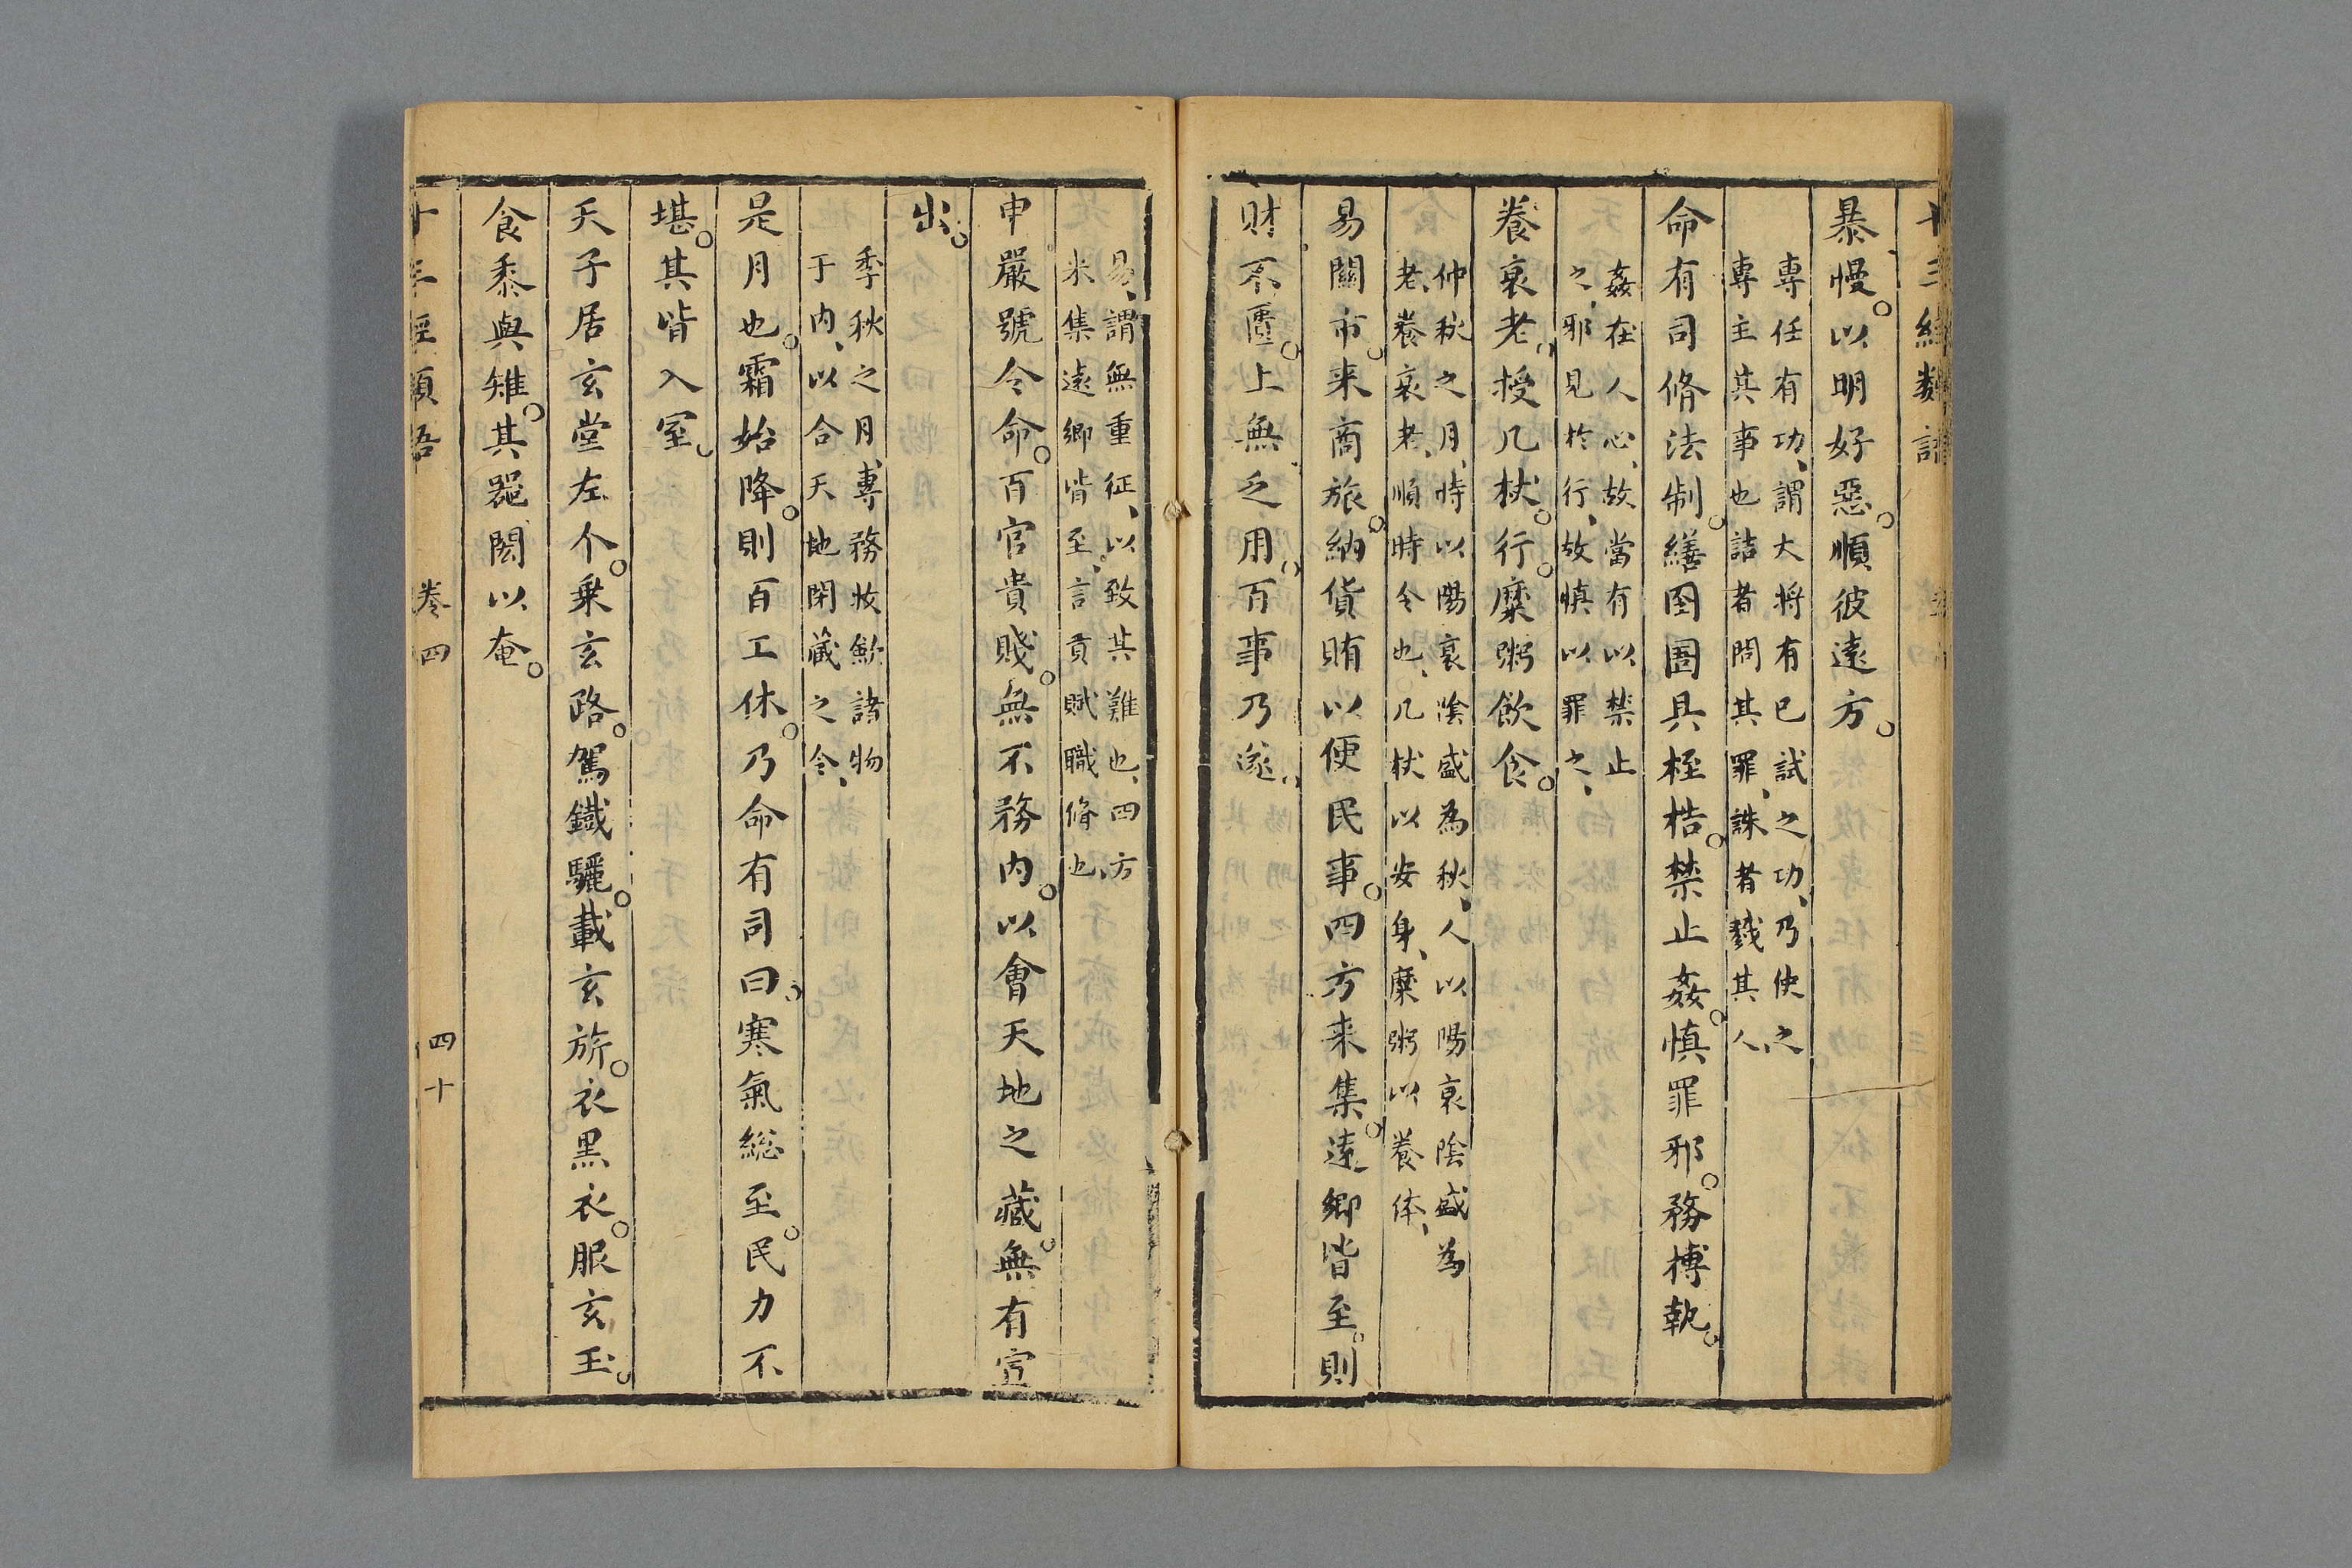 十三經類語
暴慢。以明好惡。順彼遠方。
專任有功、謂大將有已試之功、乃使之
專主其事也詰者問其罪、誅者戮其人、
命有司脩法制。繕囹圄具桎梏。禁止姦。慎罪邪。務搏執。
姦在人心、故當有以禁止
之、邪見於行、故慎以罪之、
養衰老。授几杖。行。糜粥飲食。
仲秋之月、時以陽衰陰盛為秋、人以陽衰陰盛為
老、養衰老、順時令也、几杖以安身、糜粥以養体、
易關市。来商旅。納貨賄以便民事。四方来集。遠鄉皆至。則
財不匱。上無乏用。百事乃遂。
易、謂無重征、以致其難也、四方
来集遠鄉皆至、言貢賦職脩也、
申嚴號令命。百官貴賤。無不務内。以會天地之藏。無有宣
出。
季秋之月、專務收歛諸物
于内、以合天地閉藏之令、
是月也。霜始降。則百工休。乃命有司曰。寒氣総至。民力不
堪。其皆入室。
天子居玄堂左个。乗玄路。駕鐵驪。載玄旂。衣黒衣。服玄玉。
食黍與雉。其噐閎以奄。
十三經類語 卷四 四十